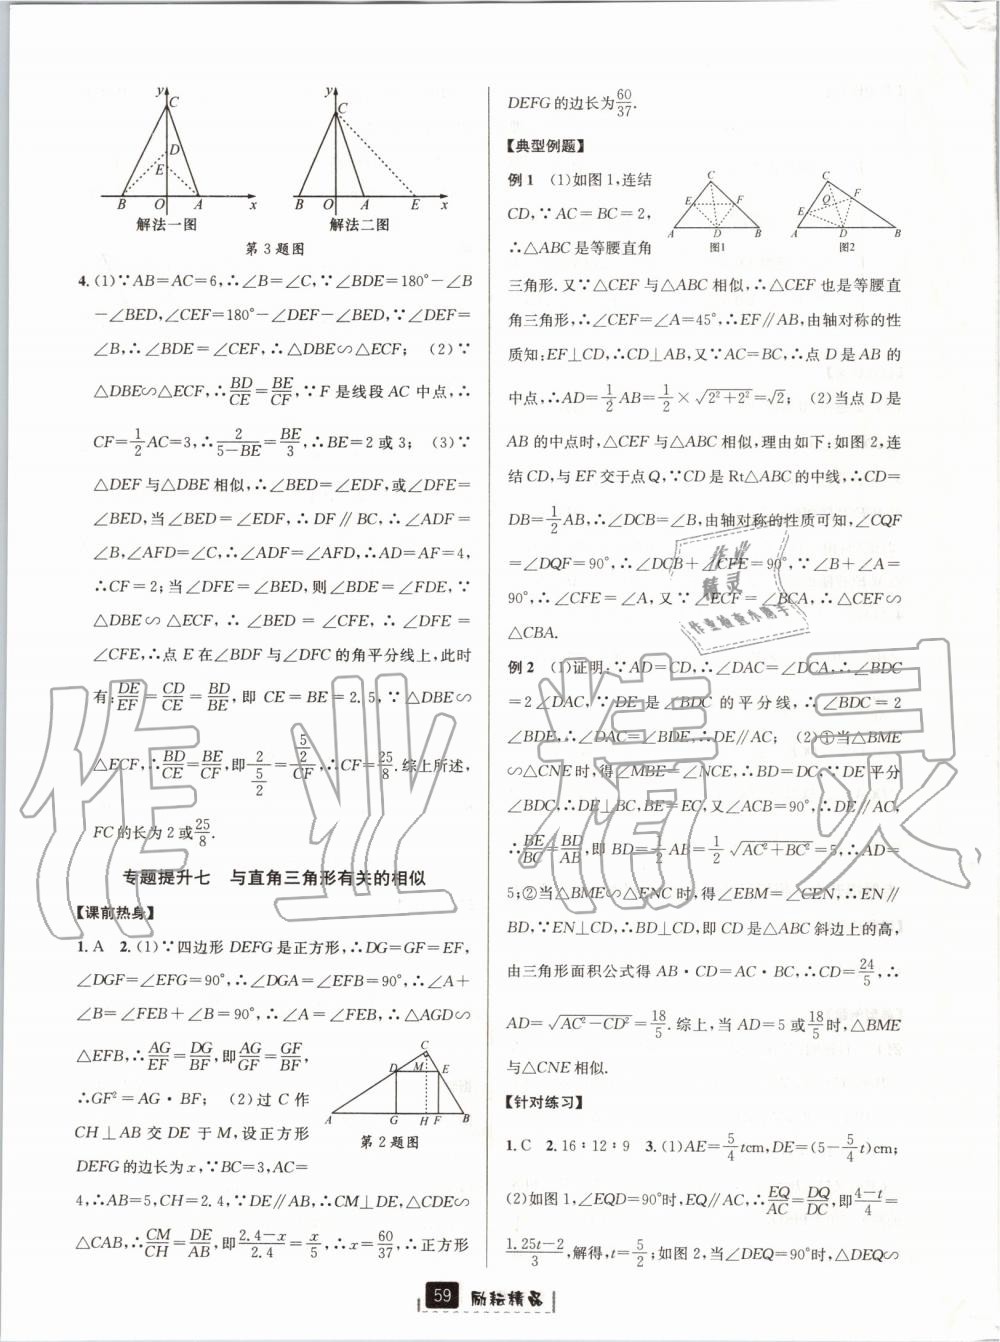 y
C
D
E
B
O
A
x
解法一图
y
C
B
O
A
E
x
解法二图
第3题图
4.(1)∵AB=AC=6,∴∠B=∠C,∵∠BDE=180°-∠B
-∠BED,∠CEF=180°-∠DEF-∠BED,∵∠DEF=
∠B,∴∠BDE=∠CEF,∴△DBE∽△ECF; (2)∵
△DBE∽△ECF,∴BD/CE=BE/CF,∵F是线段AC中点,∴
CF=1/2AC=3,∴2/(5-BE)=BE/3,∴BE=2或3; (3)∵
△DEF与△DBE相似,∴∠BED=∠EDF,或∠DFE=
∠BED,当∠BED=∠EDF,∴DF∥BC,∴∠ADF=
∠B,∠AFD=∠C,∴∠ADF=∠AFD,∴AD=AF=4,
∴CF=2;当∠DFE=∠BED,则∠BDE=∠FDE,∵
△DBE∽△ECF,∴∠BED=∠CFE,∴∠DFE=
∠CFE,∴点E在∠BDF与∠DFC的角平分线上,此时
有:DE/EF=CD/CE=BD/BE,即CE=BE=2.5,∵△DBE∽
△ECF,∴BD/CE=BE/CF,即2/(5/2)=(5/2)/CF,∴CF=25/8.综上所述,
FC的长为2或25/8.
专题提升七 与直角三角形有关的相似
【课前热身】
1.A 2.(1)∵四边形DEFG是正方形,∴DG=GF=EF,
∠DGF=∠EFG=90°,∴∠DGA=∠EFB=90°,∴∠A+
∠B=∠FEB+∠B=90°,∴∠A=∠FEB,∴△AGD∽
△EFB,∴AG/EF=DG/BF,即AG/GF=GF/BF,
∴GF²=AG·BF; (2)过C作
CH⊥AB交DE于M,设正方形
DEFG的边长为x,∵BC=3,AC=
C
D
M
E
A
G
H
F
B
第2题图
4,∴AB=5,CH=2.4,∵DE∥AB,∴CM⊥DE,△CDE∽
△CAB,∴CM/CH=DE/AB,即(2.4-x)/2.4=x/5,∴x=60/37,∴正方形
DEFG的边长为60/37.
【典型例题】
例1 (1)如图1,连结
CD,∵AC=BC=2,
∴△ABC是等腰直角
C
E
F
A
D
B
图1
C
F
Q
E
A
D
B
图2
三角形.又∵△CEF与△ABC相似,∴△CEF也是等腰直
角三角形,∴∠CEF=∠A=45°,∴EF∥AB,由轴对称的性
质知:EF⊥CD,∴CD⊥AB,又∵AC=BC,∴点D是AB的
中点,∴AD=1/2AB=1/2×√(2²+2²)=√2; (2)当点D是
AB的中点时,△CEF与△ABC相似,理由如下:如图2,连
结CD,与EF交于点Q,∵CD是Rt△ABC的中线,∴CD=
DB=1/2AB,∴∠DCB=∠B,由轴对称的性质可知,∠CQF
=∠DQF=90°,∴∠DCB+∠CFE=90°,∵∠B+∠A=
90°,∴∠CFE=∠A,又∵∠ECF=∠BCA,∴△CEF∽
△CBA.
例2 (1)证明:∵AD=CD,∴∠DAC=∠DCA,∴∠BDC
=2∠DAC,∵DE是∠BDC的平分线,∴∠BDC=2
∠BDE,∴∠DAC=∠BDE,∴DE∥AC; (2)①当△BME
∽△CNE时,得∠MBE=∠NCE,∴BD=DC,∵DE平分
∠BDC,∴DE⊥BC,BE=EC,又∠ACB=90°,∴DE∥AC,
∴BE/BC=BD/AB,即BD=1/2AB=1/2√(AC²+BC²)=5,∴AD=
5;②当△BME∽△ENC时,得∠EBM=∠CEN,∴EN∥
BD,∵EN⊥CD,∴BD⊥CD,即CD是△ABC斜边上的高,
由三角形面积公式得AB·CD=AC·BC,∴CD=24/5,∴
AD=√(AC²-CD²)=18/5.综上,当AD=5或18/5时,△BME
与△CNE相似.
【针对练习】
1.C 2.16:12:9 3.(1)AE=5/4tcm,DE=(5-5/4t)cm;
(2)如图1,∠EQD=90°时,EQ∥AC,∴EQ/AC=DQ/DC,即(4-t)/4=
(1.25t-2)/3,解得,t=5/2;如图2,当∠DEQ=90°时,△DEQ∽
作业精灵
作业
精灵
作业检查小助手
59 励耘精品